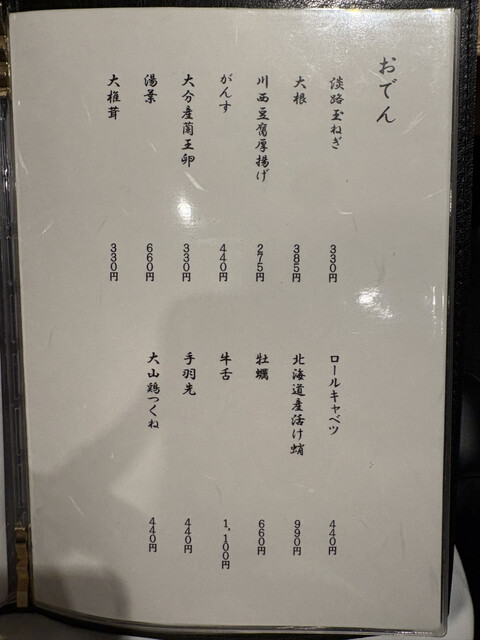 おでん
淡路玉ねぎ 330円
大根 385円
川西豆腐厚揚げ 275円
がんす 440円
大分産蘭王卵 330円
湯葉 660円
大椎茸 330円
ロールキャベツ 440円
北海道産活け蛸 990円
牡蠣 660円
牛舌 1,100円
手羽先 440円
大山鶏つくね 440円